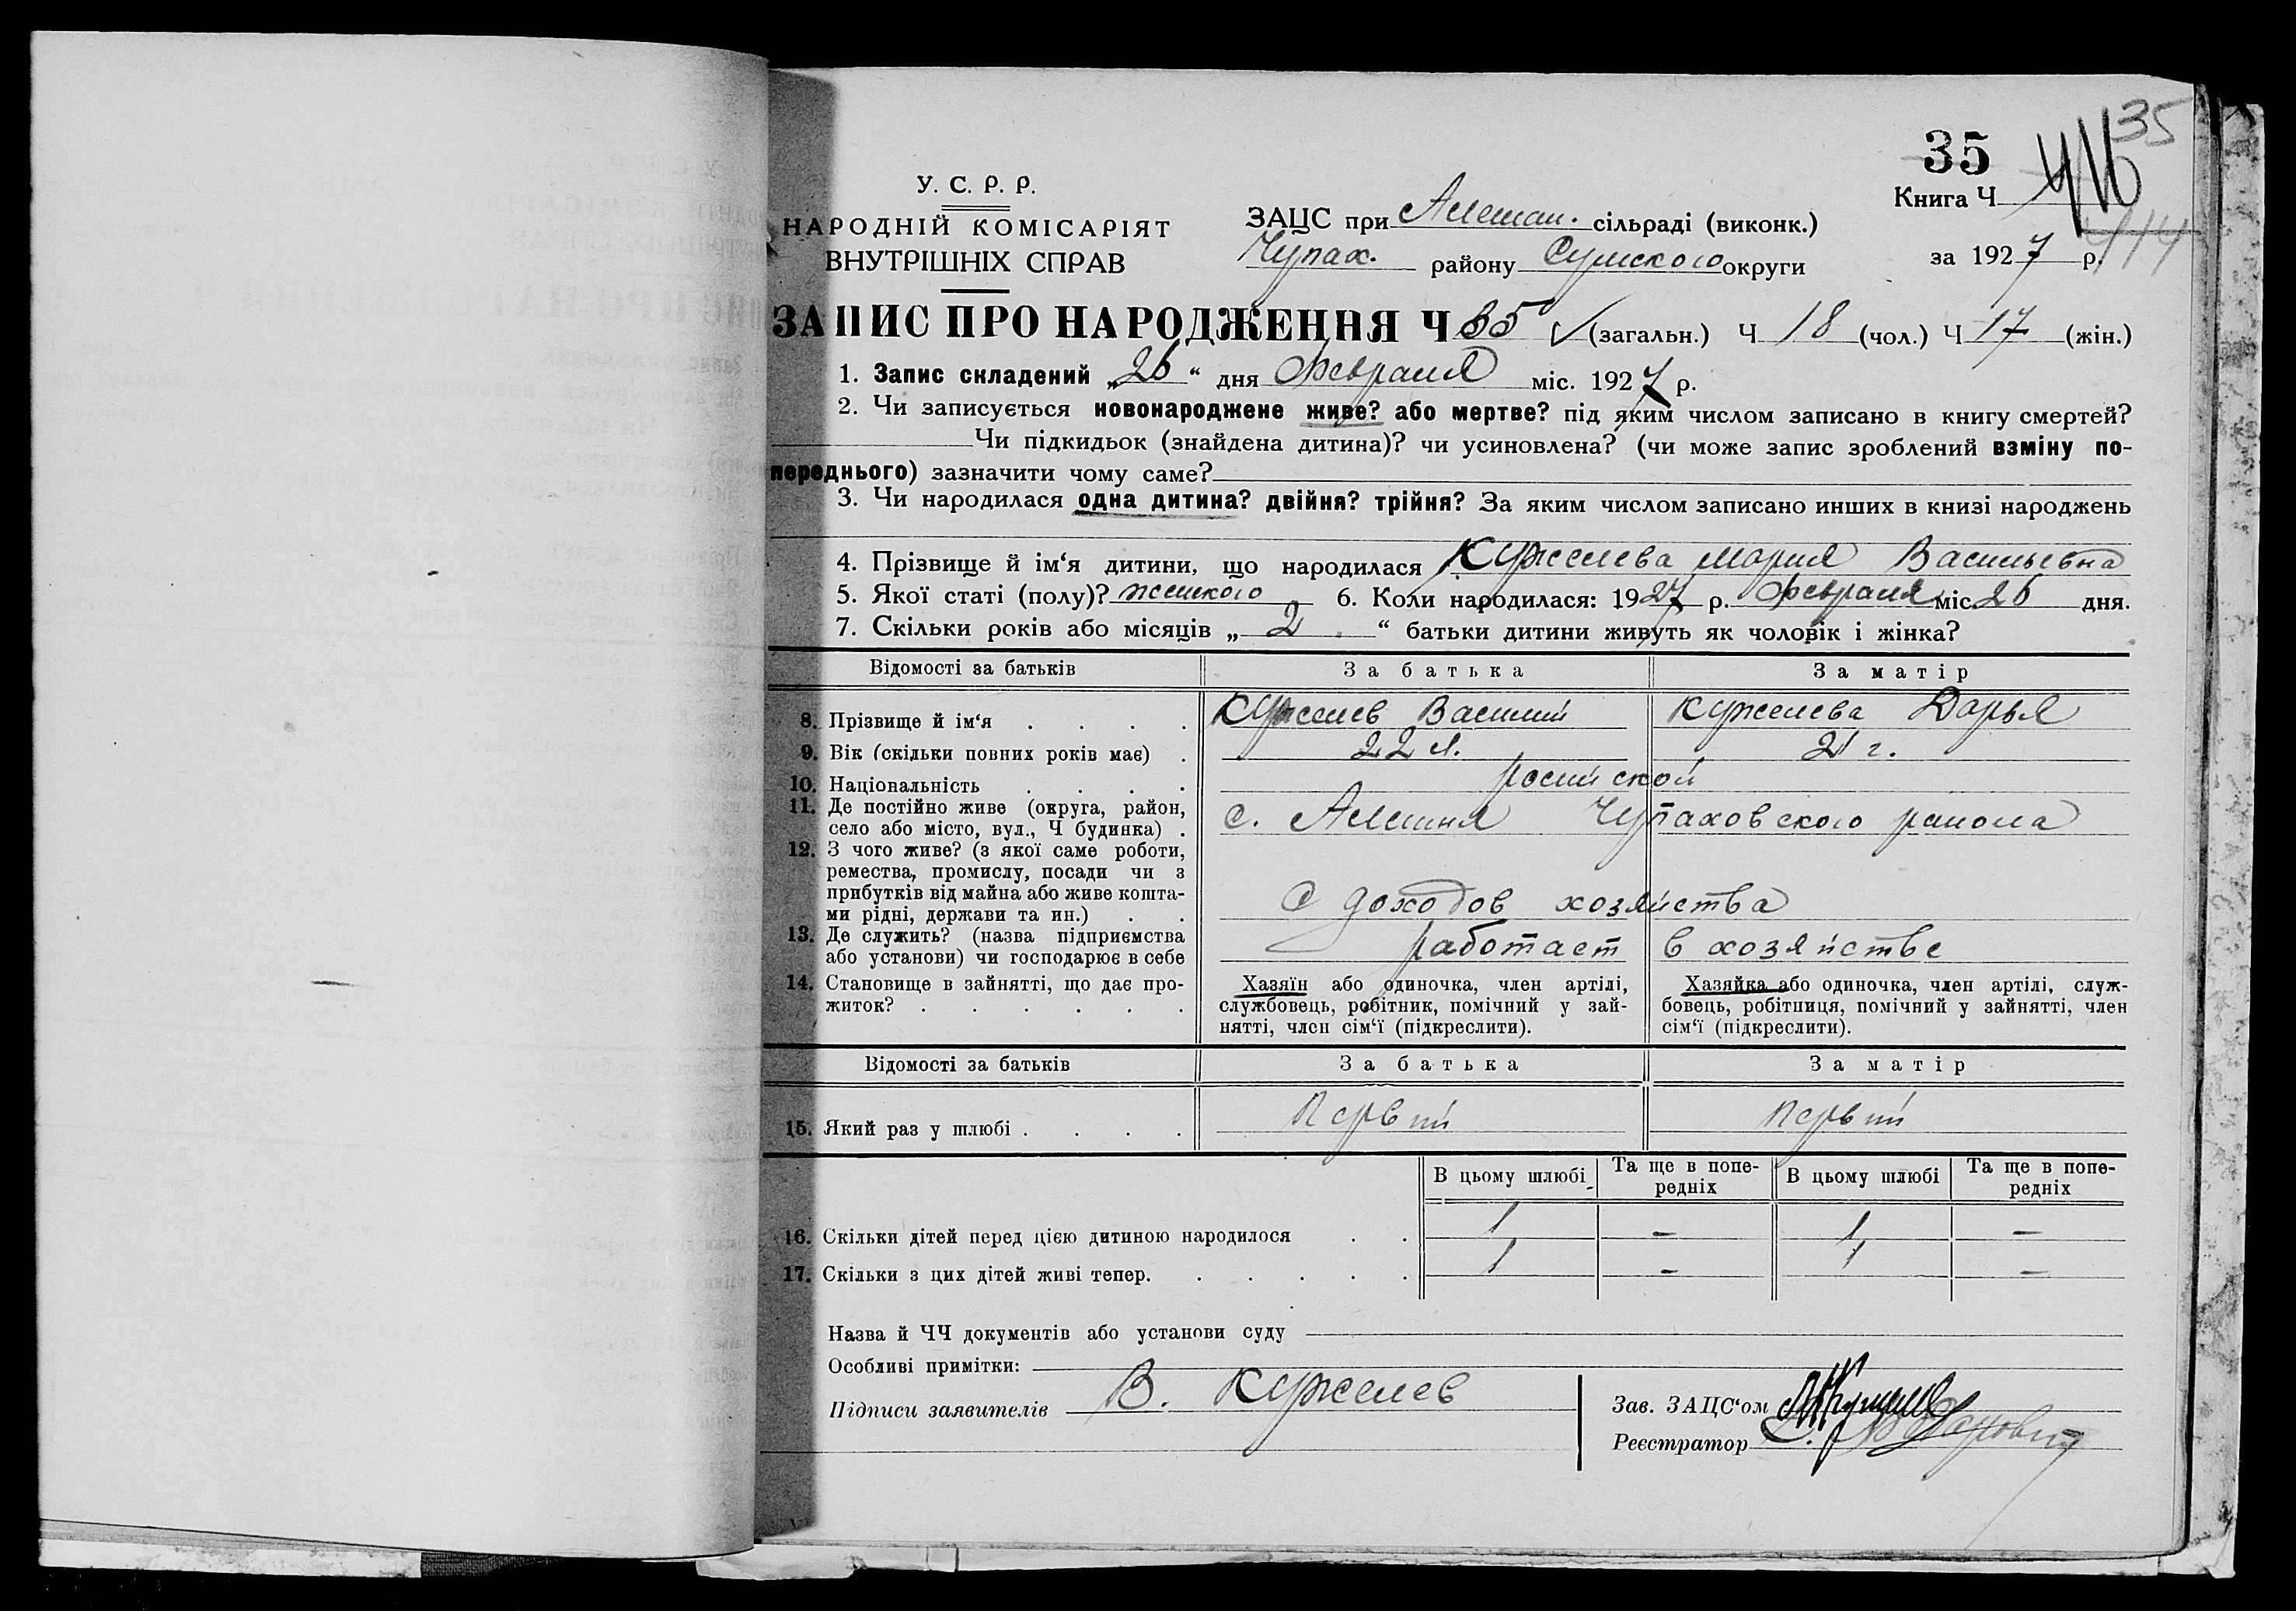 35
35
У. С. Р. Р.
Книга Ч 416
НАРОДНІЙ КОМІСАРІЯТ
ЗАЦС при Алешан. сільраді (виконк.)
414
ВНУТРІШНІХ СПРАВ
Чупах. району Сумского округи
за 1927 р.
ЗАПИС ПРО НАРОДЖЕННЯ Ч 35 (загальн.) Ч 18 (чол.) Ч 17 (жін.)
1. Запис складений „26“ дня Февраля міс. 1927 р.
2. Чи записується новонароджене живе? або мертве? під яким числом записано в книгу смертей?
Чи підкидьок (знайдена дитина)? чи усиновлена? (чи може запис зроблений взміну по-
переднього) зазначити чому саме?
3. Чи народилася одна дитина? двійня? трійня? За яким числом записано инших в книзі народжень
4. Прізвище й ім‘я дитини, що народилася Кужелева Мария Васильевна
5. Якої статі (полу)? женского 6. Коли народилася: 1927 р. Февраля міс. 26 дня.
7. Скільки років або місяців „ 2 “ батьки дитини живуть як чоловік і жінка?
Відомості за батьків За батька За матір
8. Прізвище й ім‘я . . . . Кужелев Василий Кужелева Дарья
9. Вік (скільки повних років має) . 22 л. 21 г.
10. Національність . . . . росийской
11. Де постійно живе (округа, район,
село або місто, вул., Ч будинка) . с. Алешня Чупаховского раиона
12. З чого живе? (з якої саме роботи,
ремества, промислу, посади чи з
прибутків від майна або живе кошта-
ми рідні, держави та ин.) . . С доходов хозяйства
13. Де служить? (назва підприємства
або установи) чи господарює в себе работает в хозяйстве
14. Становище в зайнятті, що дає про-
житок? . . . . . .
Хазяїн або одиночка, член артілі,
службовець, робітник, помічний у зай-
нятті, член сім‘ї (підкреслити).
Хазяйка або одиночка, член артілі, служ-
бовець, робітниця, помічний у зайнятті, член
сім‘ї (підкреслити).
Відомості за батьків За батька За матір
15. Який раз у шлюбі . . . . Первий Первий
В цьому шлюбі Та ще в попе-редніх В цьому шлюбі Та ще в попе-редніх
16. Скільки дітей перед цією дитиною народилося . . 1 — 1 —
17. Скільки з цих дітей живі тепер. . . . . . 1 — 1 —
Назва й ЧЧ документів або установи суду
Особливі примітки:
Підписи заявителів В. Кужелев
Зав. ЗАЦС‘ом
Реєстратор